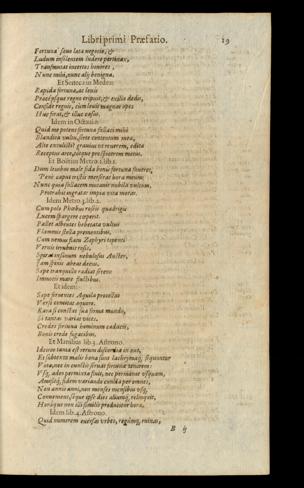 Libri primi Præfatio. 19
Fortuna sæuo læta negotio, &
Ludum insolentem ludere pertinax,
Transmutat incertos honores,
Nunc mihi, nunc alij benigna.
Et Seneca in Medea:
Rapida fortuna, ac leuis
Præcepsque regno eripuit, & exilio dedit,
Confide regnis, cum leuis magnas opes
Huc ferat, & illuc casus.
Idem in Octauia:
Quid me potens fortuna fallaci mihi
Blandita vultu, sorte contentum mea,
Alte extulisti? grauius vt ruerem, edita
Receptus arce, totque prospicerem metus.
Et Boëtius Metro 1. lib. 1.
Dum leuibus male fida bonis fortuna faueret,
Pene caput tristis merserat hora meum;
Nunc quia fallacem mutauit nubila vultum,
Protrahit ingratas impia vita moras.
Idem Metro 3. lib. 2.
Cum polo Phœbus roseis quadrigis
Lucem spargere cœperit
Pallet albentes hebetata vultus
Flammis stella prementibus,
Cum nemus flatu Zephyri tepenti
Vernis inrubuit rosis,
Spiret insanum nebulosus Auster,
Iam spinis abeat decus.
Sæpe tranquillo radiat sereno
Immotis mare fluctibus.
Et idem:
Sæpe feruentes Aquilo procellas
Verso concitat æquore.
Rara si constat sua forma mundo,
Si tantas variat vices,
Credes fortunis hominum caducis,
Bonis crede fugacibus.
Et Manilius lib. 3. Astrono.
Idcirco tanta est rerum discordia in æuo,
Et subtexta malis bona sunt lachrymæque sequuntur
Vota, nec in cunctis seruat fortuna tenorem:
Vsque, adeo permixta fluit, nec permanet vsquam,
Amisitque fidem variando cuncta per omnes,
Non annis anni, non menses mensibus vsque
Conueniunt, seque ipse dies aliumque relinquit,
Horáque non vlli similis producitur hora.
Idem lib. 4. Astrono.
Quid numerem euersas vrbes, regumque ruinas,
B ij